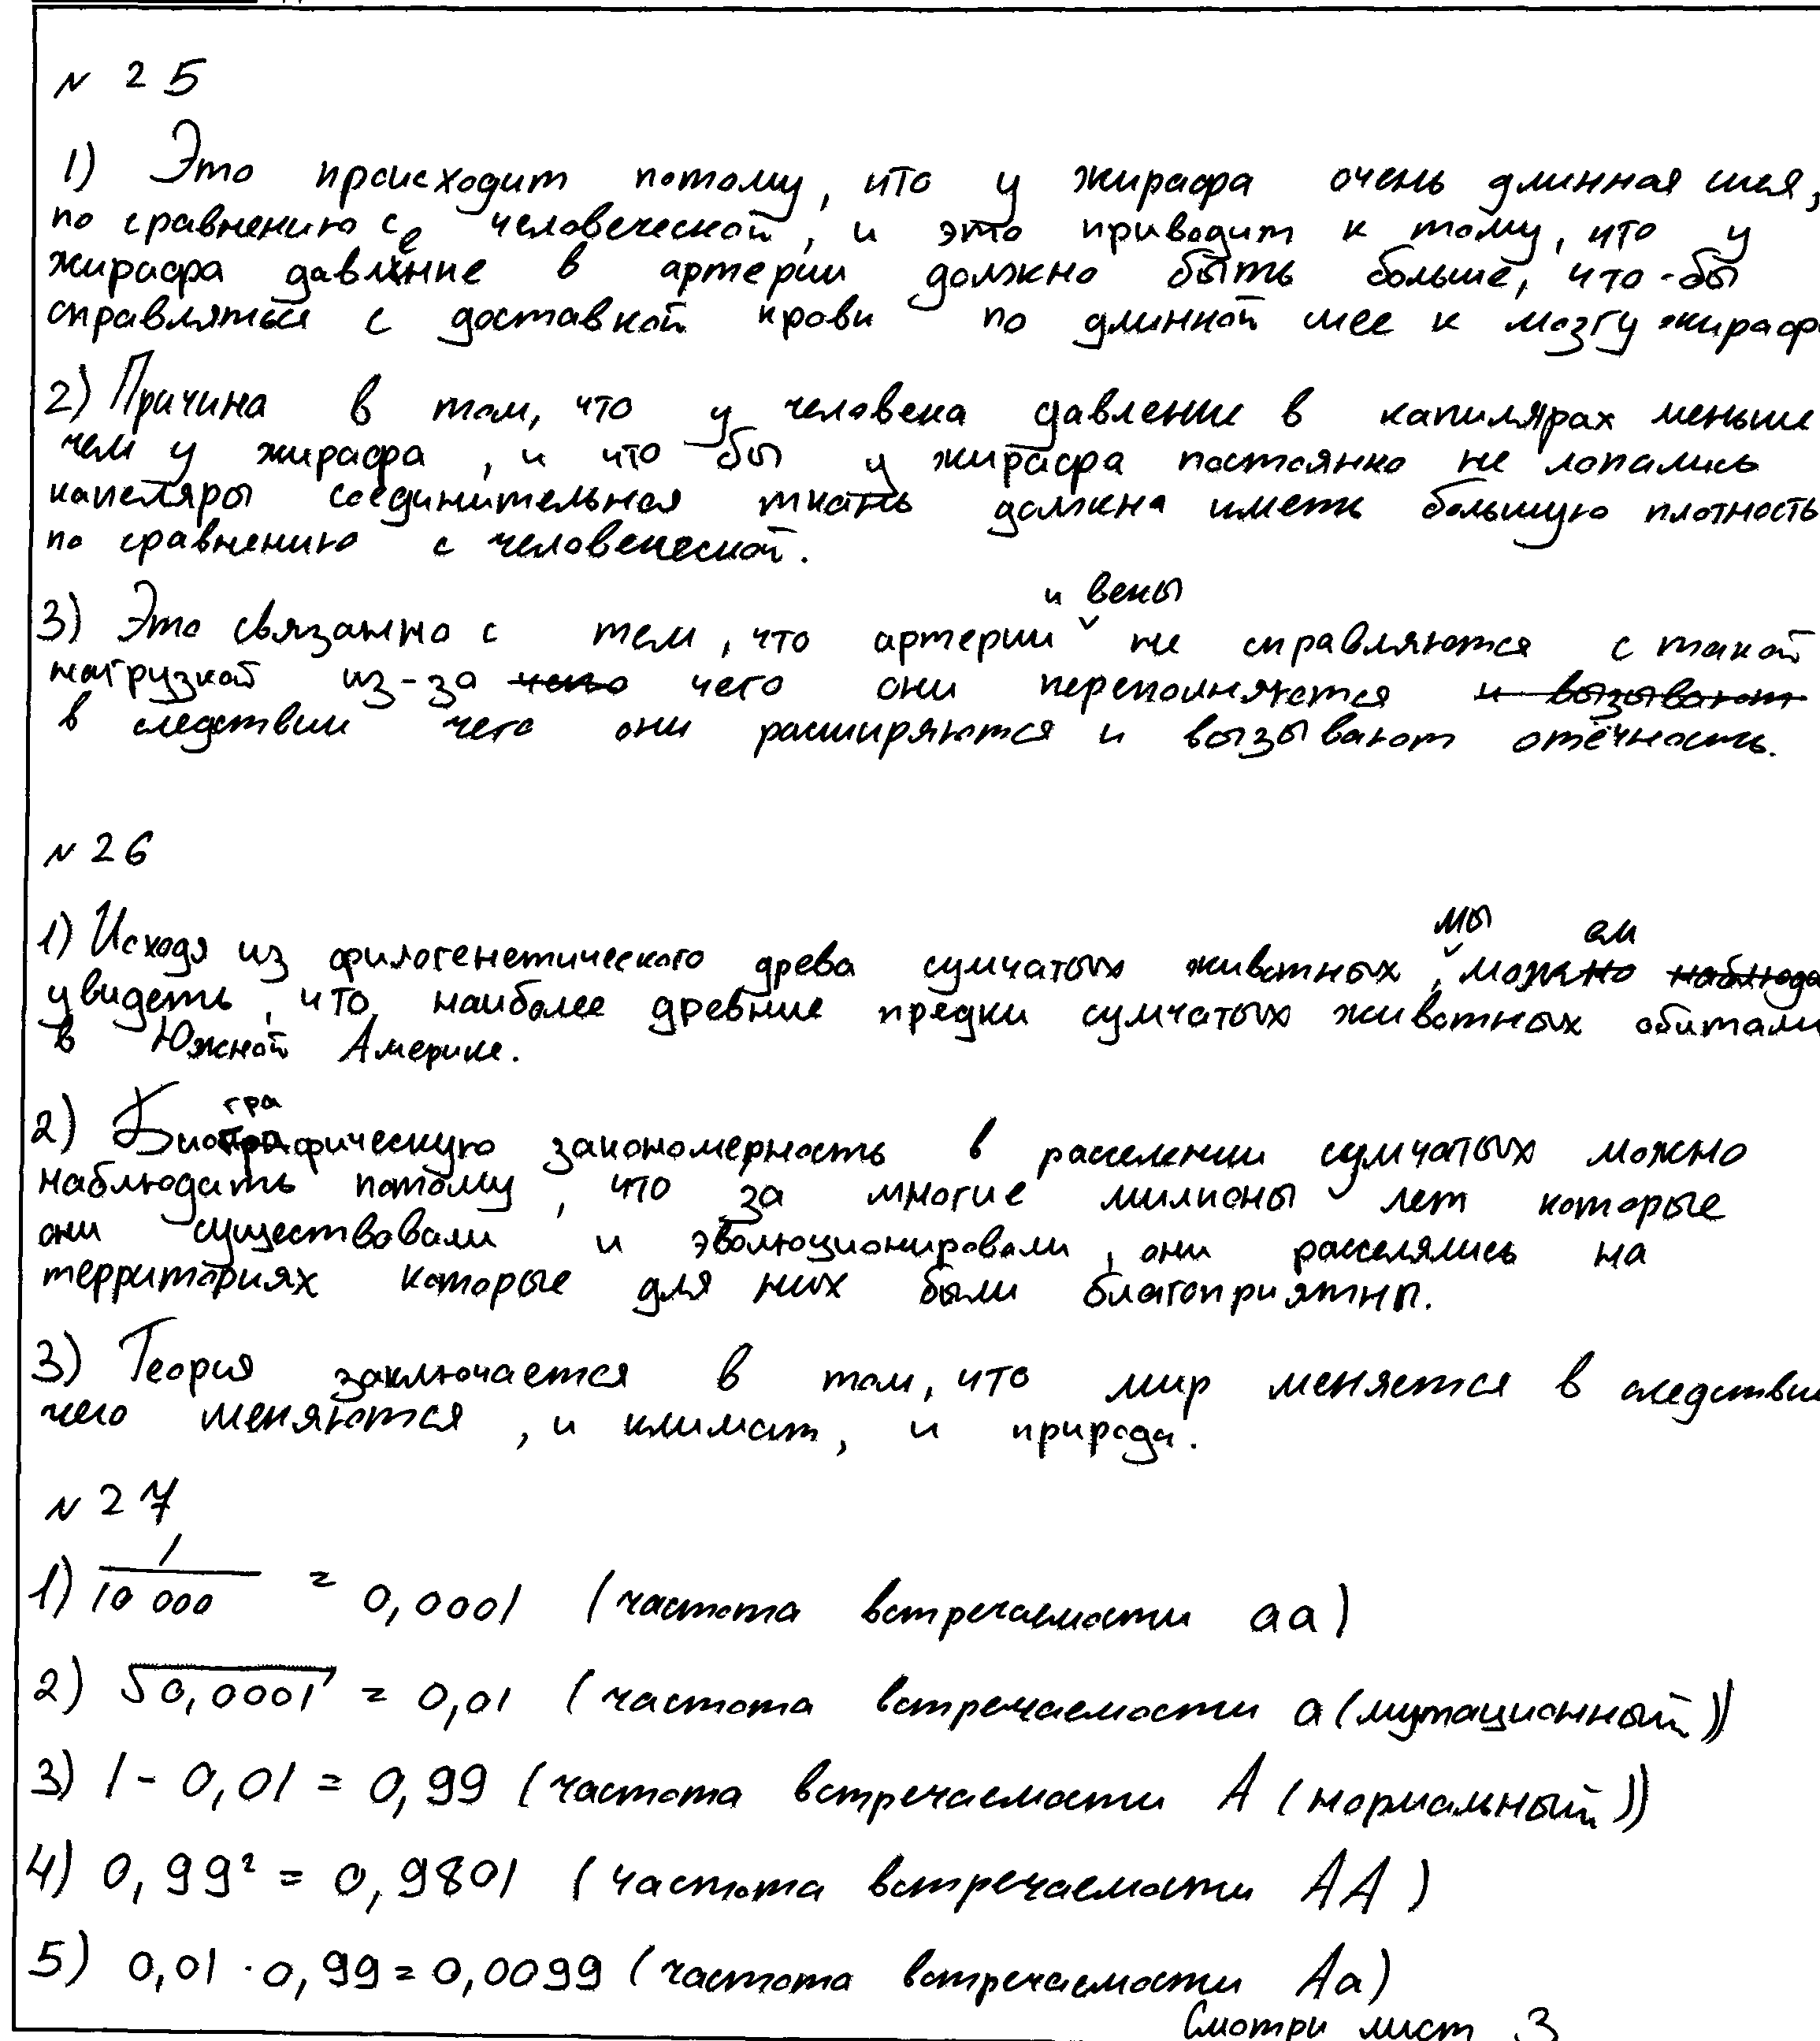 N 25
1) Это происходит потому, что у жирафа очень длинная шея,
по сравнению с человеческой, и это приводит к тому, что у
жирафа давление в артерии должно быть больше, что-бы
справляться с доставкой крови по длинной шее к мозгу жирафа
2) Причина в том, что у человека давление в капилярах меньше
чем у жирафа, и что бы у жирафа постоянно не лопались
капеляры соединительная ткань должна иметь большую плотность
по сравнению с человеческой.
3) Это связанно с тем, что артерии и вены не справляются с такой
нагрузкой из-за чего они переполняются
в следствии чего они расширяются и вызывают отёчность.
N 26
1) Исходя из филогенетического древа сумчатых животных, мы можем
увидеть, что наиболее древние предки сумчатых животных обитали
в Южной Америке.
2) Биографическую закономерность в расселении сумчатых можно
наблюдать потому, что за многие милионы лет которые
они существовали и эволюционировали, они расселялись на
территориях которые для них были благоприятны.
3) Теория заключается в том, что мир меняется в следствии
чего меняются, и климат, и природа.
N 27
1) 1/10 000 = 0,0001 (частота встречаемости аа)
2) √0,0001 = 0,01 (частота встречаемости а (мутационный))
3) 1 - 0,01 = 0,99 (частота встречаемости А (нормальный))
4) 0,99² = 0,9801 (частота встречаемости АА)
5) 0,01 · 0,99 = 0,0099 (частота встречаемости Аа)
Смотри лист 3